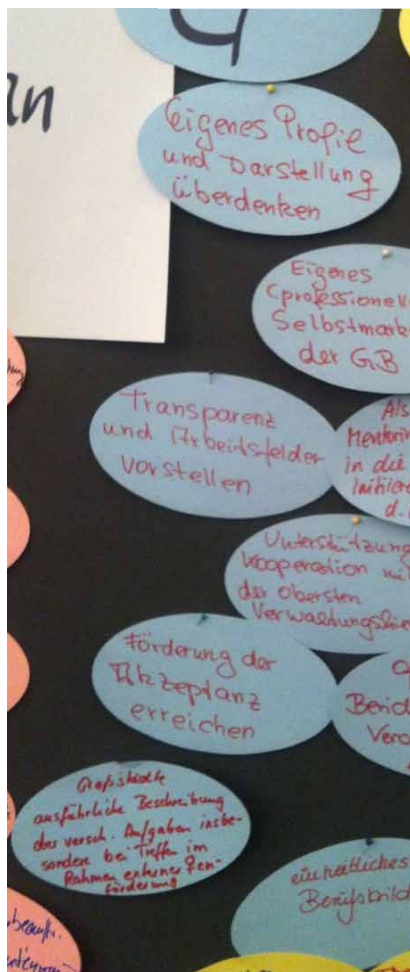 an
4
Eigenes Profil
und Darstellung
überdenken
Eigenes
(professionell
Selbstmark
der GB
Transparenz
und Arbeitsfelder
vorstellen
Als
Mentorin
in die
Initiier
d.
Unterstützung
Kooperation mi
der obersten
Verwaltungs
Förderung der
Akzeptanz
erreichen
Beric
Vera
Großstädte
ausführliche Beschreibung
der versch. Aufgaben insbe-
sondere bei Treffen im
Rahmen externer Fen-
förderung
einheitliches
Berufsbild
beauftr.